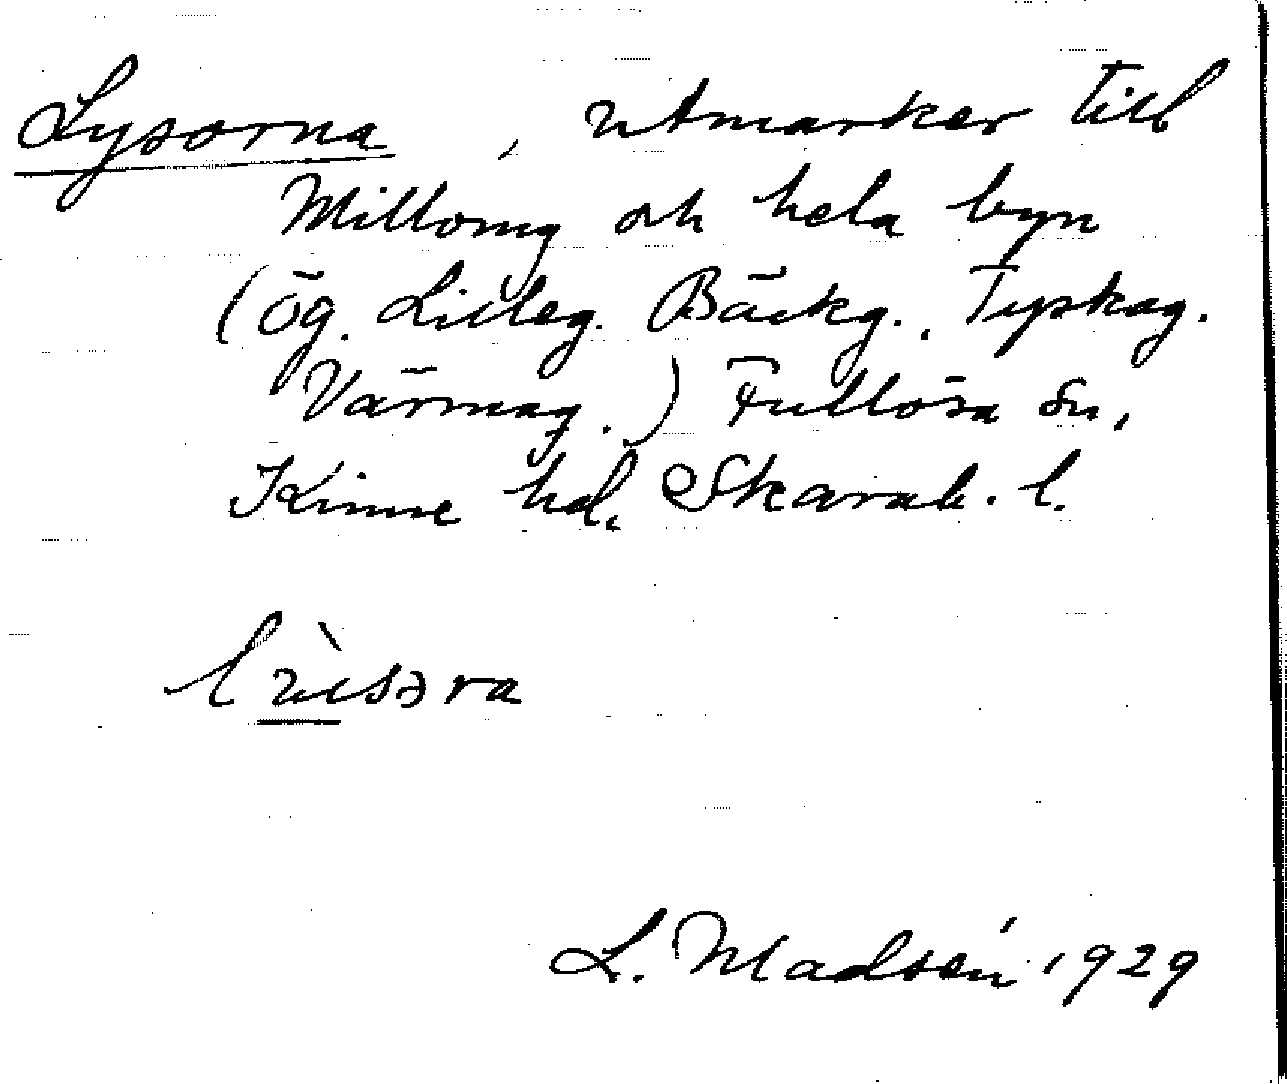 Lysorna, utmarker till
Millomg och hela byn
(Ög. Lilleg. Bäckg., Tyskag.
Värmag.) Fullösa sn,
Kinne hd, Skarab. l.
L. Madsén 1929